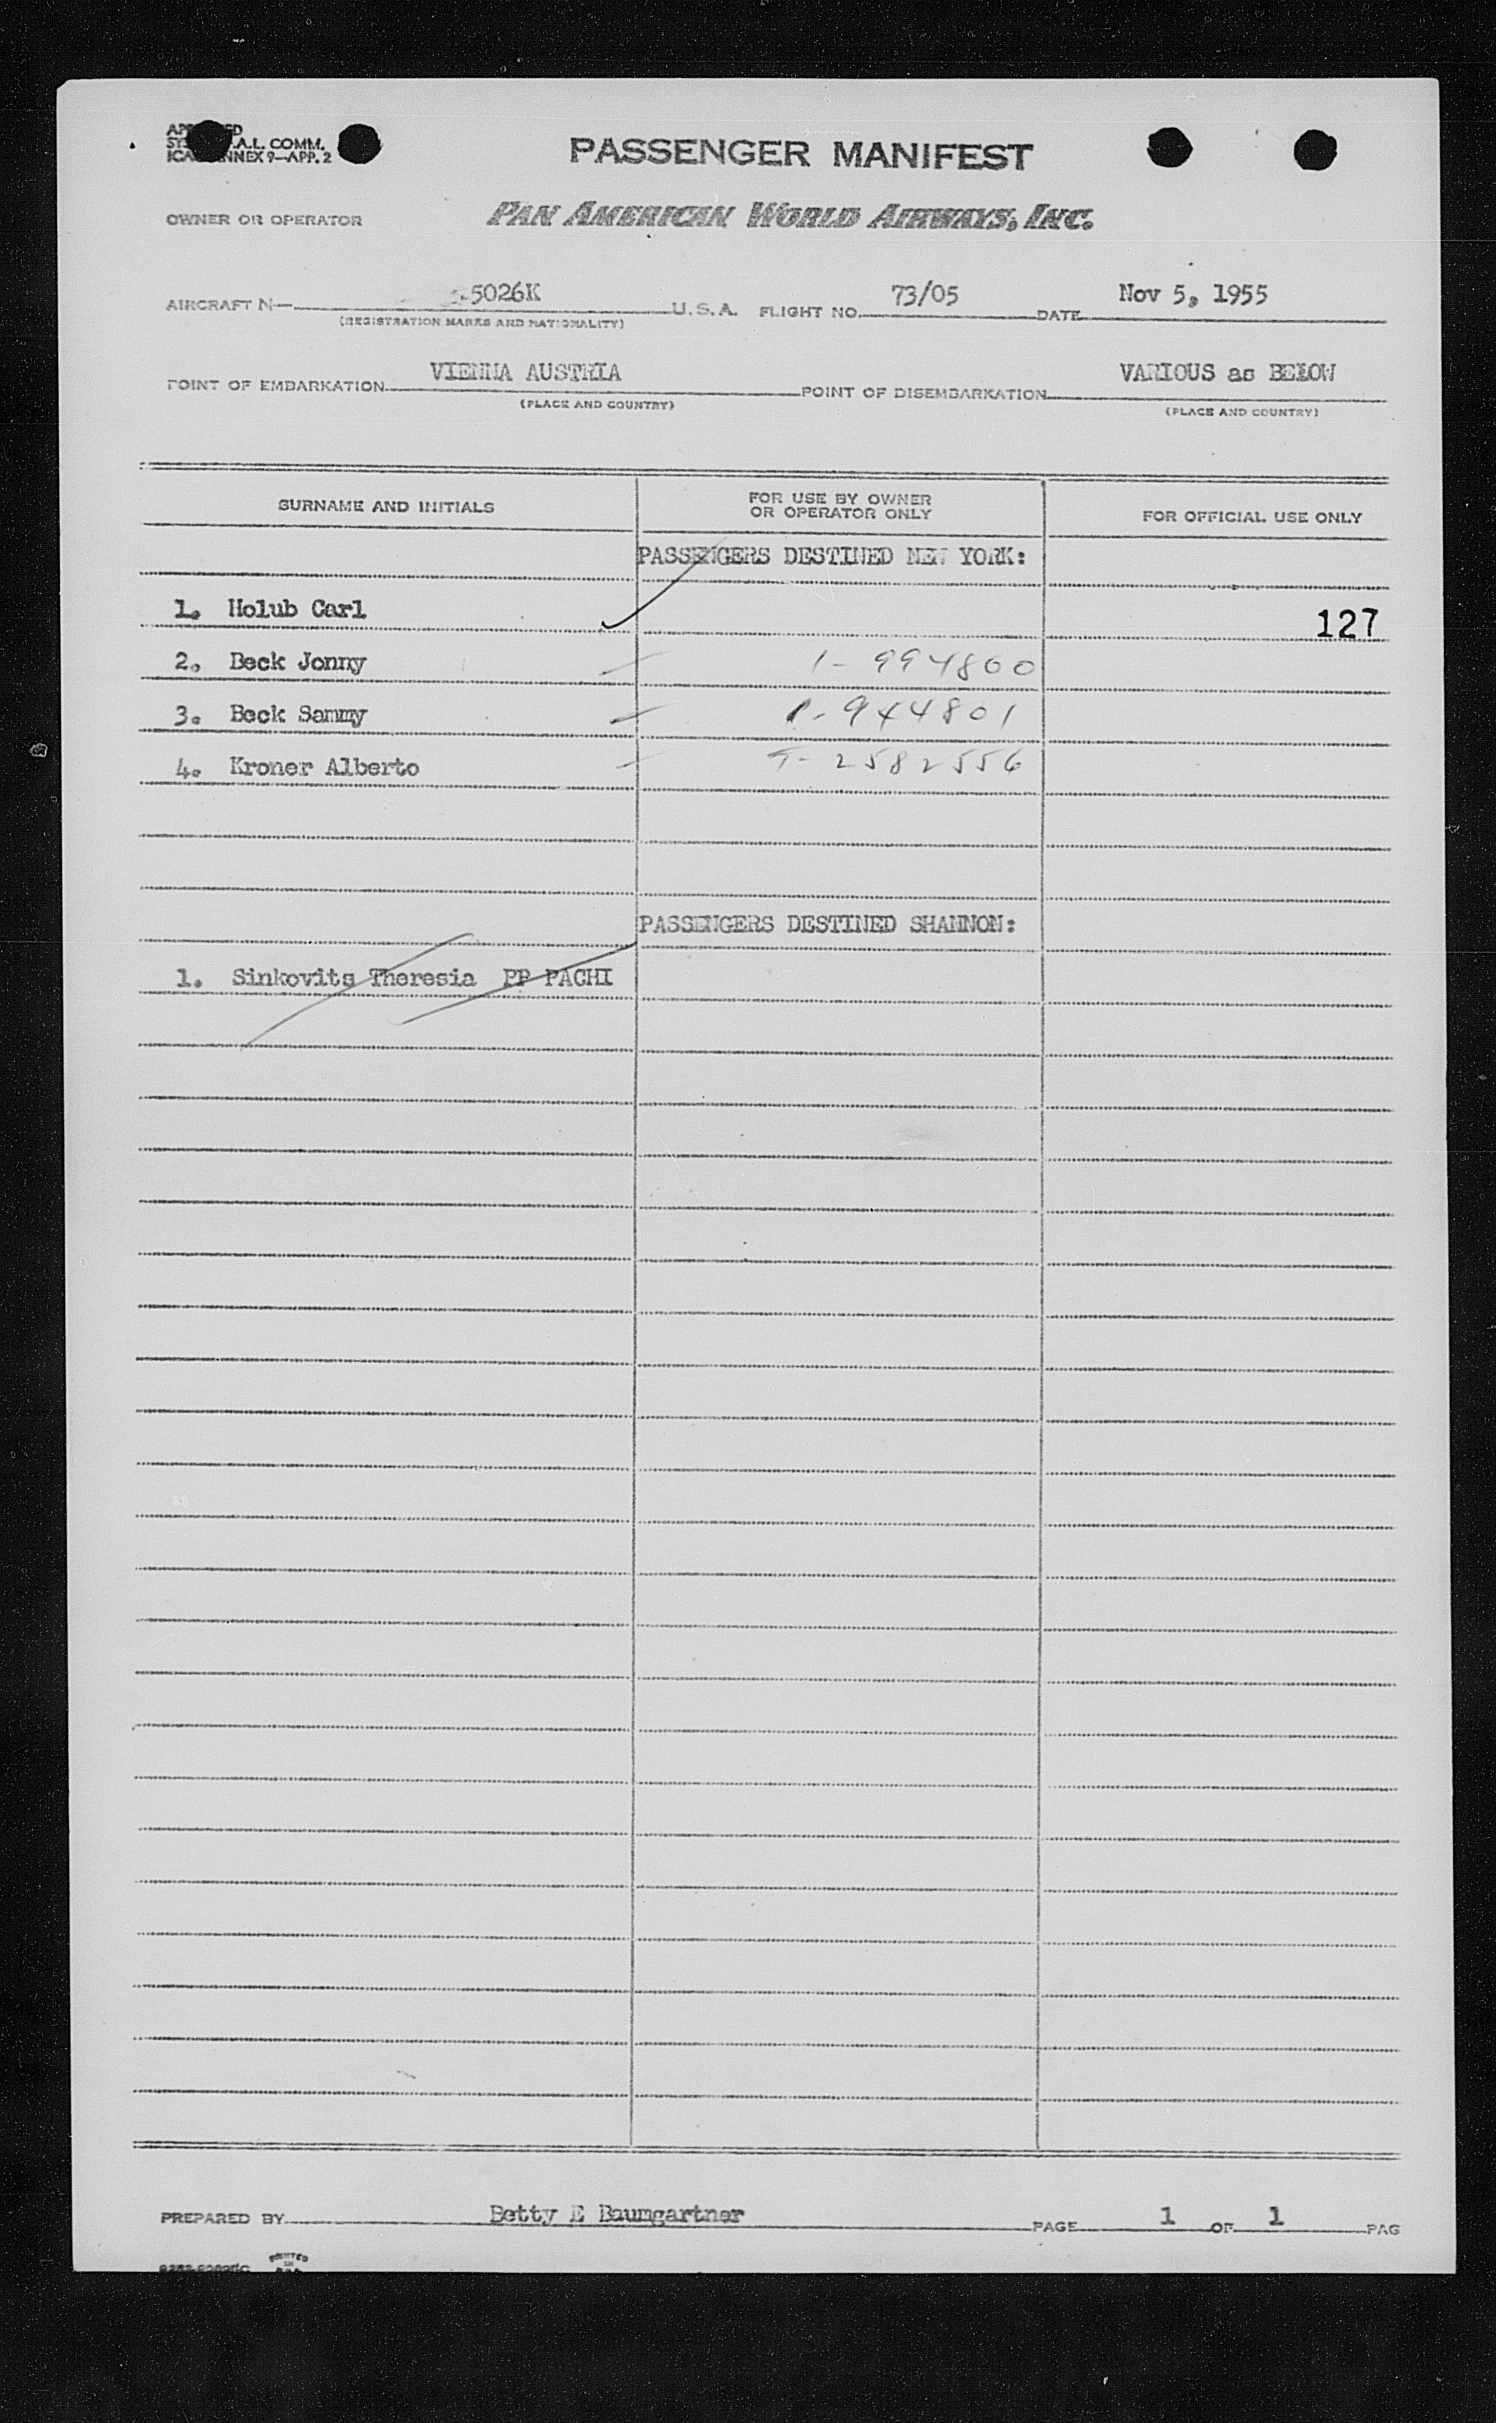 PASSENGER MANIFEST
A.L. COMM.
9—APP. 2
OWNER OR OPERATOR PAN AMERICAN WORLD AIRWAYS, INC.
AIRCRAFT N— 5026K U.S.A. FLIGHT NO. 73/05 DATE Nov 5, 1955
(REGISTRATION MARKS AND NATIONALITY)
POINT OF EMBARKATION VIENNA AUSTRIA POINT OF DISEMBARKATION VARIOUS as BELOW
(PLACE AND COUNTRY) (PLACE AND COUNTRY)
SURNAME AND INITIALS FOR USE BY OWNER OR OPERATOR ONLY FOR OFFICIAL USE ONLY
PASSENGERS DESTINED NEW YORK:
1. Holub Carl 127
2. Beck Jonny 1- 994800
3. Beck Sammy 1- 944801
4. Kroner Alberto T- 2582556
PASSENGERS DESTINED SHANNON:
1. Sinkovits Theresia PP PACHI
PREPARED BY Betty E Baumgartner PAGE 1 OF 1 PAG
PRINTED
IN